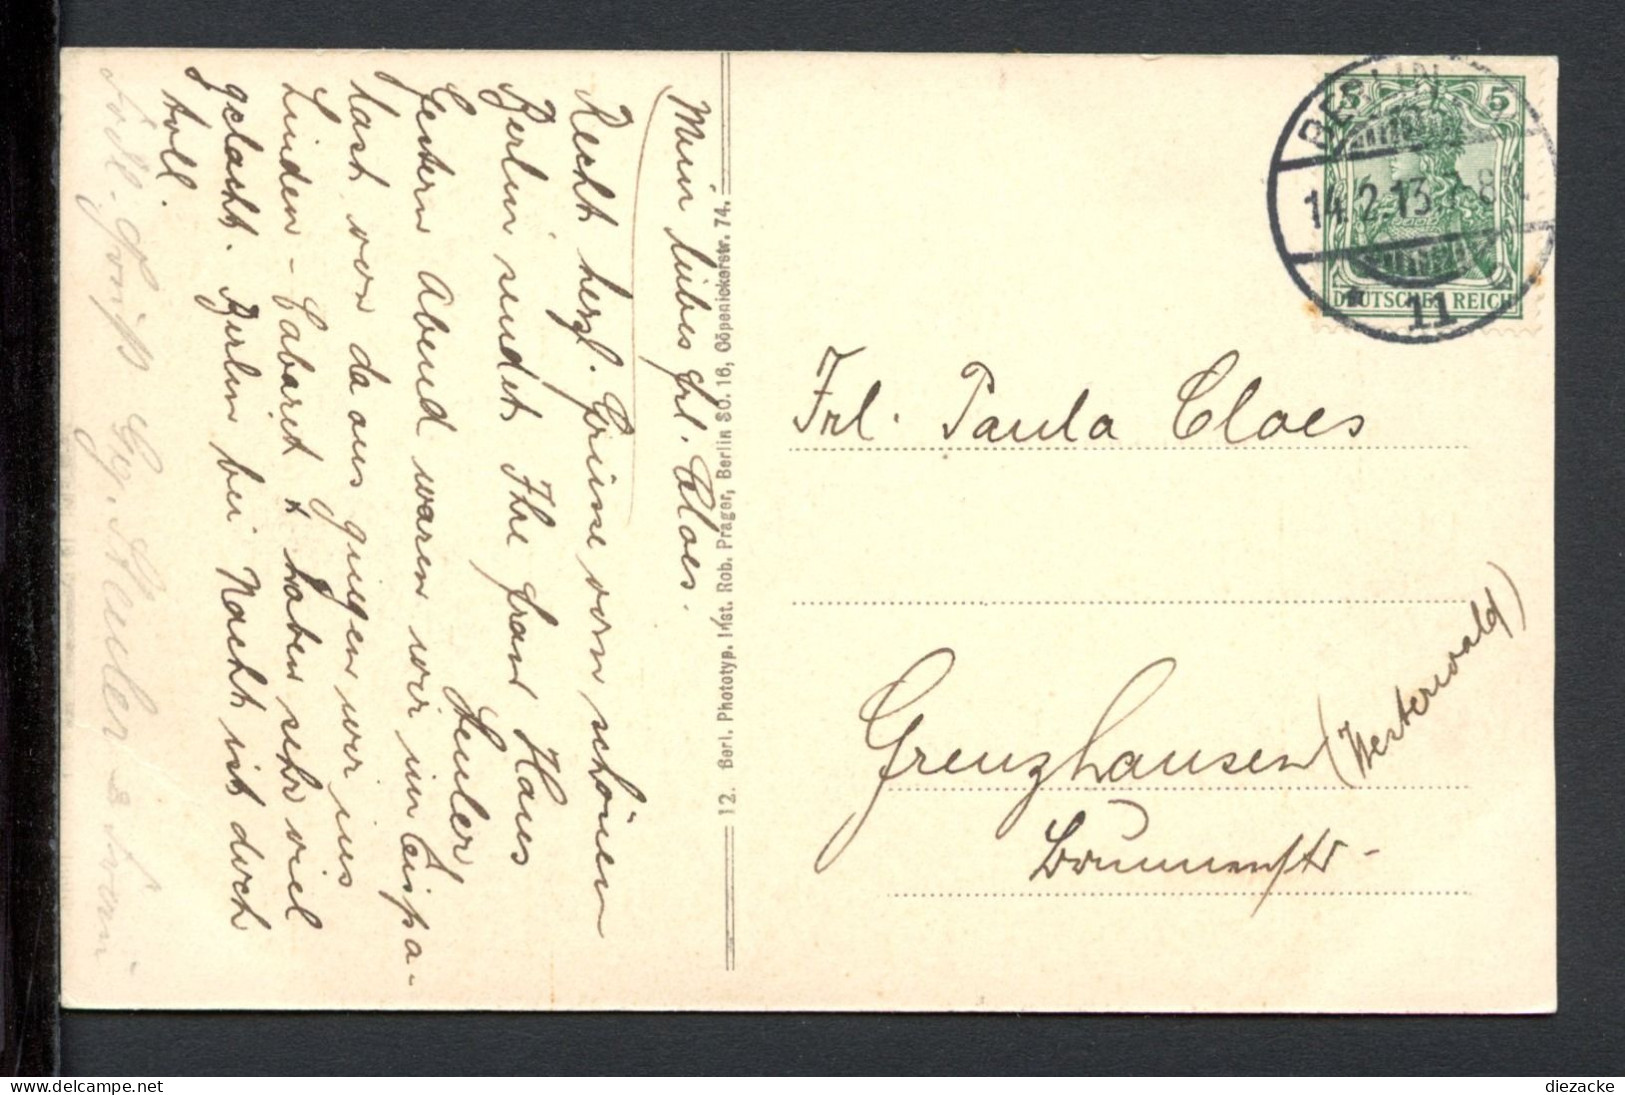 Mein liebes Frl. Cloes.
Recht herzl. Grüsse vom schönen
Berlin sendet Ihre Frau Haus
Seuler
Gestern Abend waren wir im Eispa-
last von da aus giengen wir ins
Linden-Cabaret & haben sehr viel
gelacht. Berlin bei Nacht ist doch
toll.
12. Berl. Phototyp. Inst. Rob. Prager, Berlin SO. 16, Cöpenickerstr. 74.
BERLIN
14.2.13. 8
11
5 5
DEUTSCHES REICH
Frl. Paula Cloes
Grenzhausen
(Westerwald)
Brunnenstr-
diezacke